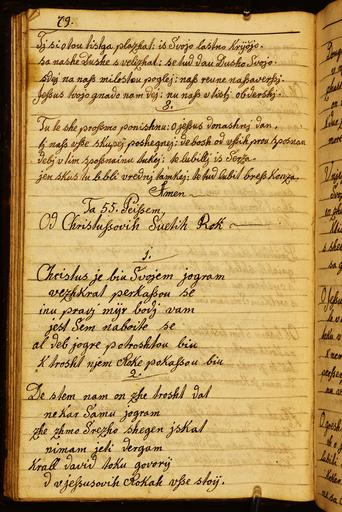 79.
Ti si otou tistga plazhat: is Svojo lastno Kryyjo.
sa nashe Dushe s velizhat: se tud dau Dusho Svojo.
Sdej na naß milostou poglej: naß reune na ßaverßej.
Jeßus tvojo gnado nam dej: nu naß v tistj obdershj.
3.
Tu le ske proßmo ponishnu: o Jeßus donashnj dan,
tj naß vße skupej posheg nej: de bosh od vßih prou sposnan
debj v tim sposnainu tukej: te lubilj is Serza.
jen skus tu li blj vrednj tamkej: te tud lubit breß Konza.
Amen
Ta 55. Peißem
Od Christußovih Svetih Rok
1.
Christus je biu Svojem jogram
vezhkrat perkaßou se
inu pravj mijr bodj vam
jest Sem na boite se
al deb jogre potroshtou biu
K trosht njem Roke pokaßou biu
2.
De stem nam on zhe trosht dat
ne kar Samu jogram
zhe zhmo Srezho shegen jskat
nimam jeti dergam
Krall david toku govorij
d v jeßusovih Rokah vße stoij.